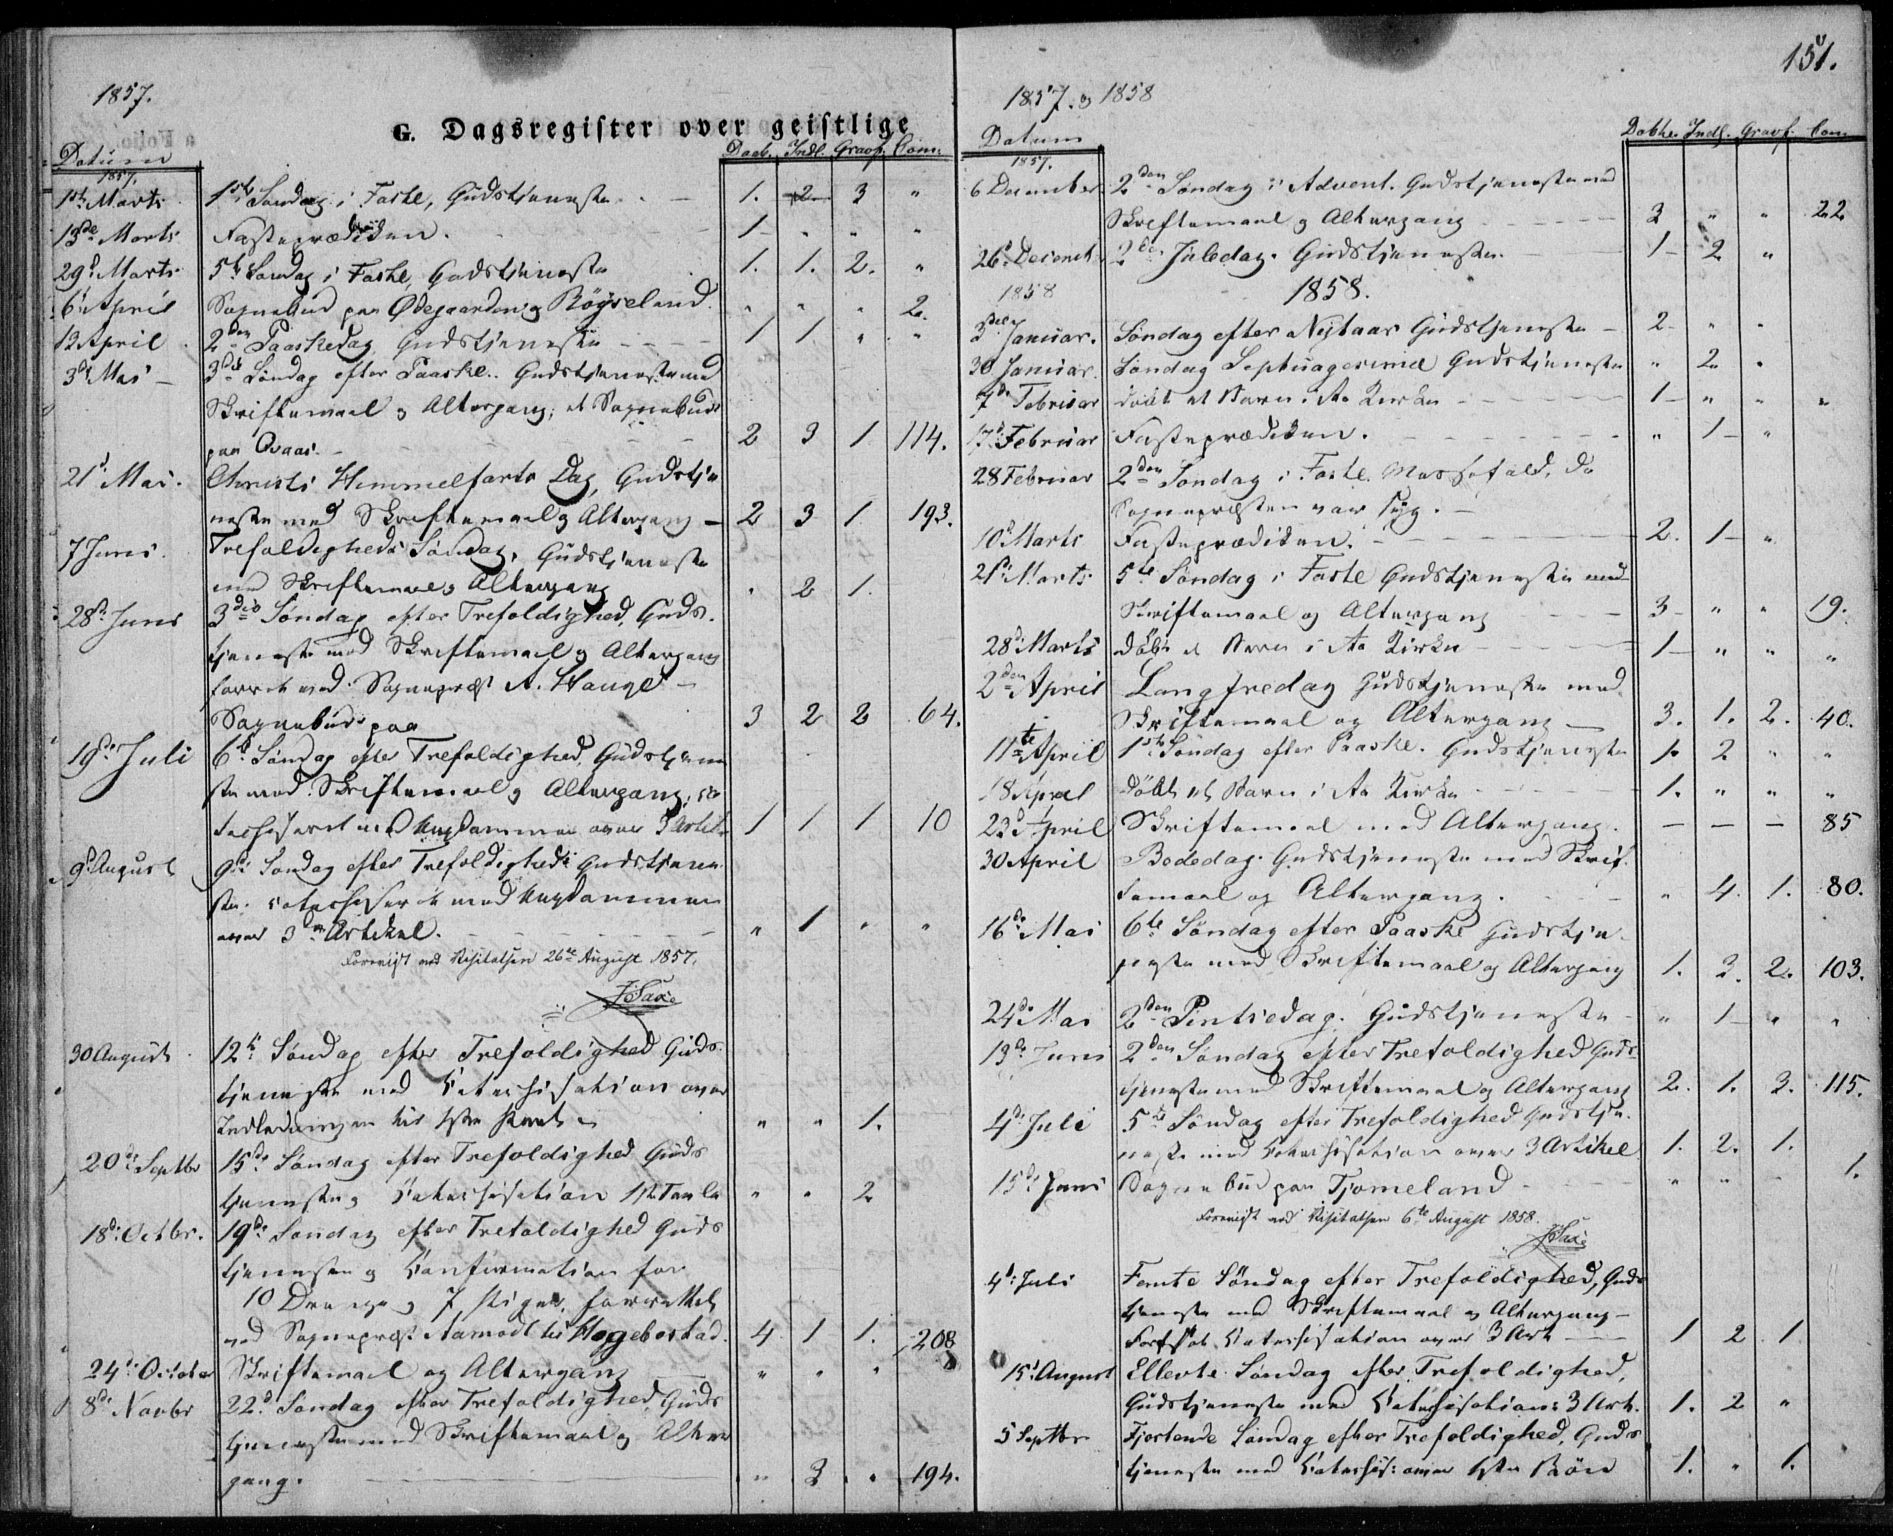 1857.
G. Dagsregister over geistlige
Datum Daab. Indl. Gravf. Com:
1857.
1ste Marts 1ste Søndag i Faste, Gudstjeneste 1. 2 3 "
13de Marts Fasteprædiken. 1 " " "
29d Marts 5te Søndag i Faste, Gudstjeneste 1. 1. 2. "
6te April Sognebud paa Ødegaarden og Röyseland. " " " 2.
13 April 2den Paaskedag Gudstjeneste 1 1 " "
3die Mai 3die Søndag efter Paaske. Gudstjeneste med
Skriftemaal og Altergang; et Sognebud
paa Qvaas. 2 3 1 114.
21d Mai. Christi Himmelfarts Dag, Gudstje
neste med Skriftemaal og Altergang 2 3 1 193.
7 Juni. Trefoldigheds Søndag, Gudstjeneste
med Skriftemaal og Altergang " 2 1.
28d Juni 3die Søndag efter Trefoldighed, Guds-
tjeneste med Skriftemaal og Altergang
forrett. ved Sognepræst A. Hauge
Sognebud paa 3 2 2 64.
19de Juli 6te Søndag efter Trefoldighed, Gudstjene
ste med Skriftemaal og Altergang; ca
techiseret med Ungdommen over 3 Artikel 1 1 1 10
9d August 9de Søndag efter Trefoldighed Gudstjene
ste. catechiseret med Ungdommen
over 3die Artikel. " 1 " "
Foreviist ved Visitatsen 26de August 1857.
30 August 12te Søndag efter Trefoldighed Guds
tjeneste med Catechisation over
Indledningen til 1ste Part " " 1.
20de Septbr 15de Søndag efter Trefoldighed Guds
tjeneste og Catechisation 1ste Tavle " " 2
18d: Octbr. 19de Søndag efter Trefoldighed Guds
tjeneste og Confirmation for
10 Drenge og 7 Piger, forrettet
ved Sognepræst Aamodt til Høgebostad. 4 1 1. 208
24d: October Skriftemaal og Altergang " " "
8de Novbr 22d Søndag efter Trefoldighed, Guds
tjeneste med Skriftemaal og Alter
gang. " 3 " 194.
151.
1857. og 1858
Datum Döbte. Indl. Gravf. Com.
1857.
6 December 2den Søndag i Advent. Gudstjeneste med
Skriftemaal og Altergang 3 " " 22
26d Decemb 2den Juledag. Gudstjeneste 1 2 "
1858 1858.
3die Januar. Søndag efter Nytaar Gudstjeneste 2 " "
30 Januar. Søndag Septuagesima Gudstjeneste " 2 "
7de Februar döbt et Barn i Aa Kirke 1 " " "
17d Februar Fasteprædiken. " 1 "
28 Februar 2den Søndag i Faste. Messefald, da
Sognepræsten var syg.
10d Marts Fasteprædiken. 2. 1 "
21d Marts 5te Søndag i Faste Gudstjeneste med
Skriftemaal og Altergang 3 " " 19.
28d Marts döbt et Barn i Aa Kirke 1 " " "
2den April Langfredag Gudstjeneste med
Skriftemaal og Altergang 3. 1. 2. 40.
11te April 1ste Søndag efter Paaske. Gudstjeneste 1. 2 " "
18 April döbt et Barn i Aa Kirke 1. " " "
23d April Skriftemaal med Altergang. — — — 85
30 April Bededag. Gudstjeneste med Skrif
temaal og Altergang. " 4. 1. 80.
16de Mai 6te Søndag efter Paaske Gudstje-
neste med Skriftemaal og Altergang 1. 3. 2. 103.
24de Mai 2den Pintsedag. Gudstjeneste " 1 " "
13de Juni 2den Søndag efter Trefoldighed Guds-
tjeneste med Skriftemaal og Altergang 2. 1. 3. 115.
4de Juli 5te Søndag efter Trefoldighed Gudstje-
neste med Catechisation over 3 Artikel 1. 2. 1.
15de Juni Sognebud paa Tjomeland " " " 1.
Foreviist ved Visitatsen 6te August 1858.
4d: Juli Femte Søndag efter Trefoldighed, Guds
tjeneste med Skriftemaal og Altergang
Fortsat Catechisation over 3 Art 1 2 1
15d August Ellevte Søndag efter Trefoldighed,
Gudstjeneste med Catechisation: 3 Art. 1. 2 "
5 Septbr Fjortende Søndag efter Trefoldighed, Guds
tjeneste med Catechis: over 1ste Bön 1. " 1.